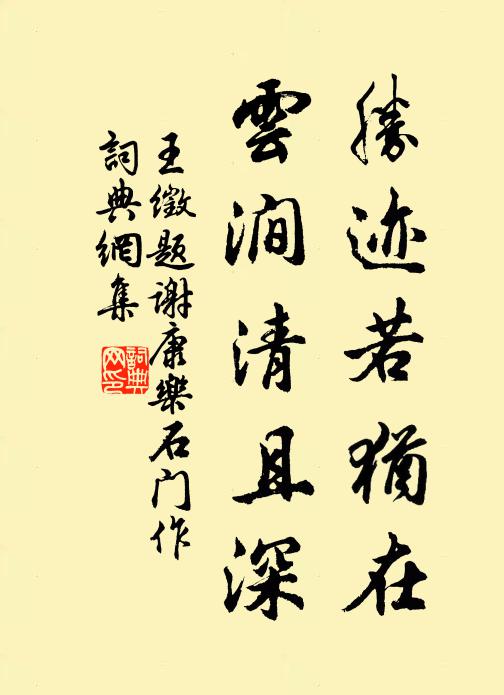 勝迹若猶在
雲澗清且深
王徵題謝康樂石门作
詞典網集
詞典
网印